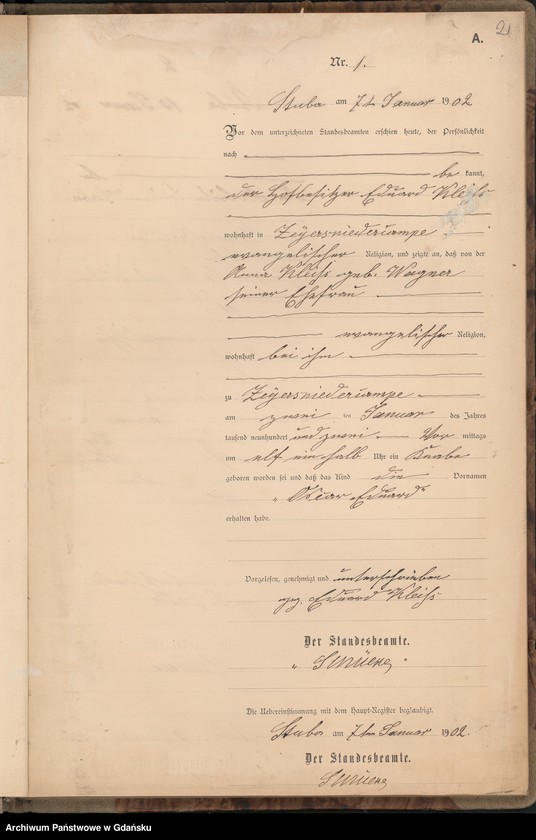 2
A.
Nr. 1.
Stuba am 7ten Januar 1902
Vor dem unterzeichneten Standesbeamten erschien heute, der Persönlichkeit
nach
bekannt,
der Hofbesitzer Eduard Kleiß
wohnhaft in Zeyersniedercampe
evangelischer Religion, und zeigte an, daß von der
Anna Kleiß geb. Wagner
seiner Ehefrau
evangelischer Religion,
wohnhaft bei ihm
zu Zeyersniedercampe
am zwei ten Januar des Jahres
tausend neunhundert und zwei Vor mittags
um elf ein halb Uhr ein Knabe
geboren worden sei und daß das Kind die Vornamen
„Oscar Eduard“
erhalten habe.
Vorgelesen, genehmigt und unterschrieben
gez. Eduard Kleiß
Der Standesbeamte.
Die Uebereinstimmung mit dem Haupt-Register beglaubigt.
Stuba am 7ten Januar 1902.
Der Standesbeamte.
Archiwum Państwowe w Gdańsku